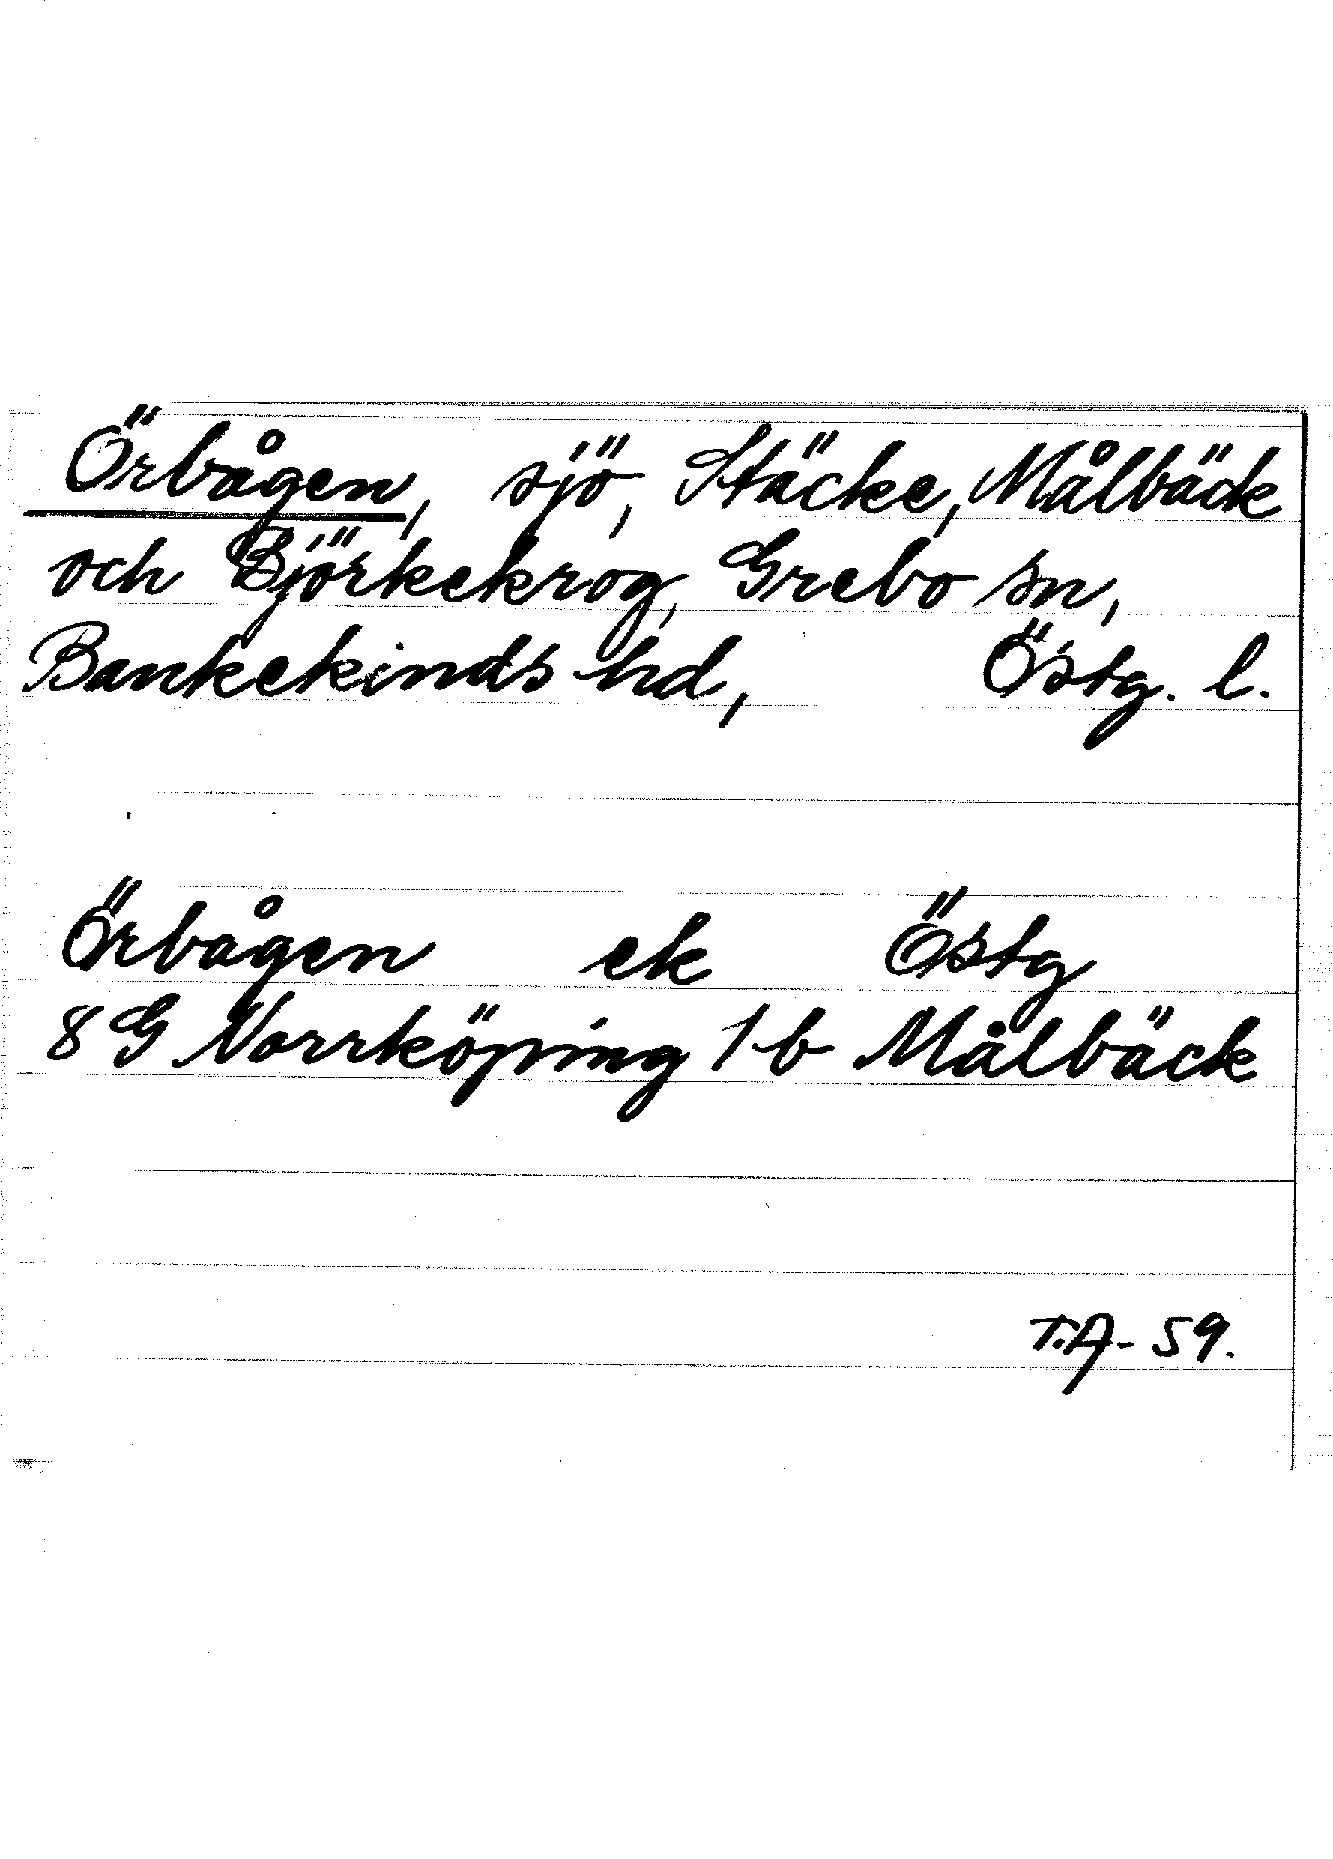 Örbågen, sjö, Stäcke, Målbäck
och Björkekrog, Grebo sn,
Bankekinds hd, Östg. l.
Örbågen ek Östg
8 G Norrköping 1 b Målbäck
T.A - 59.